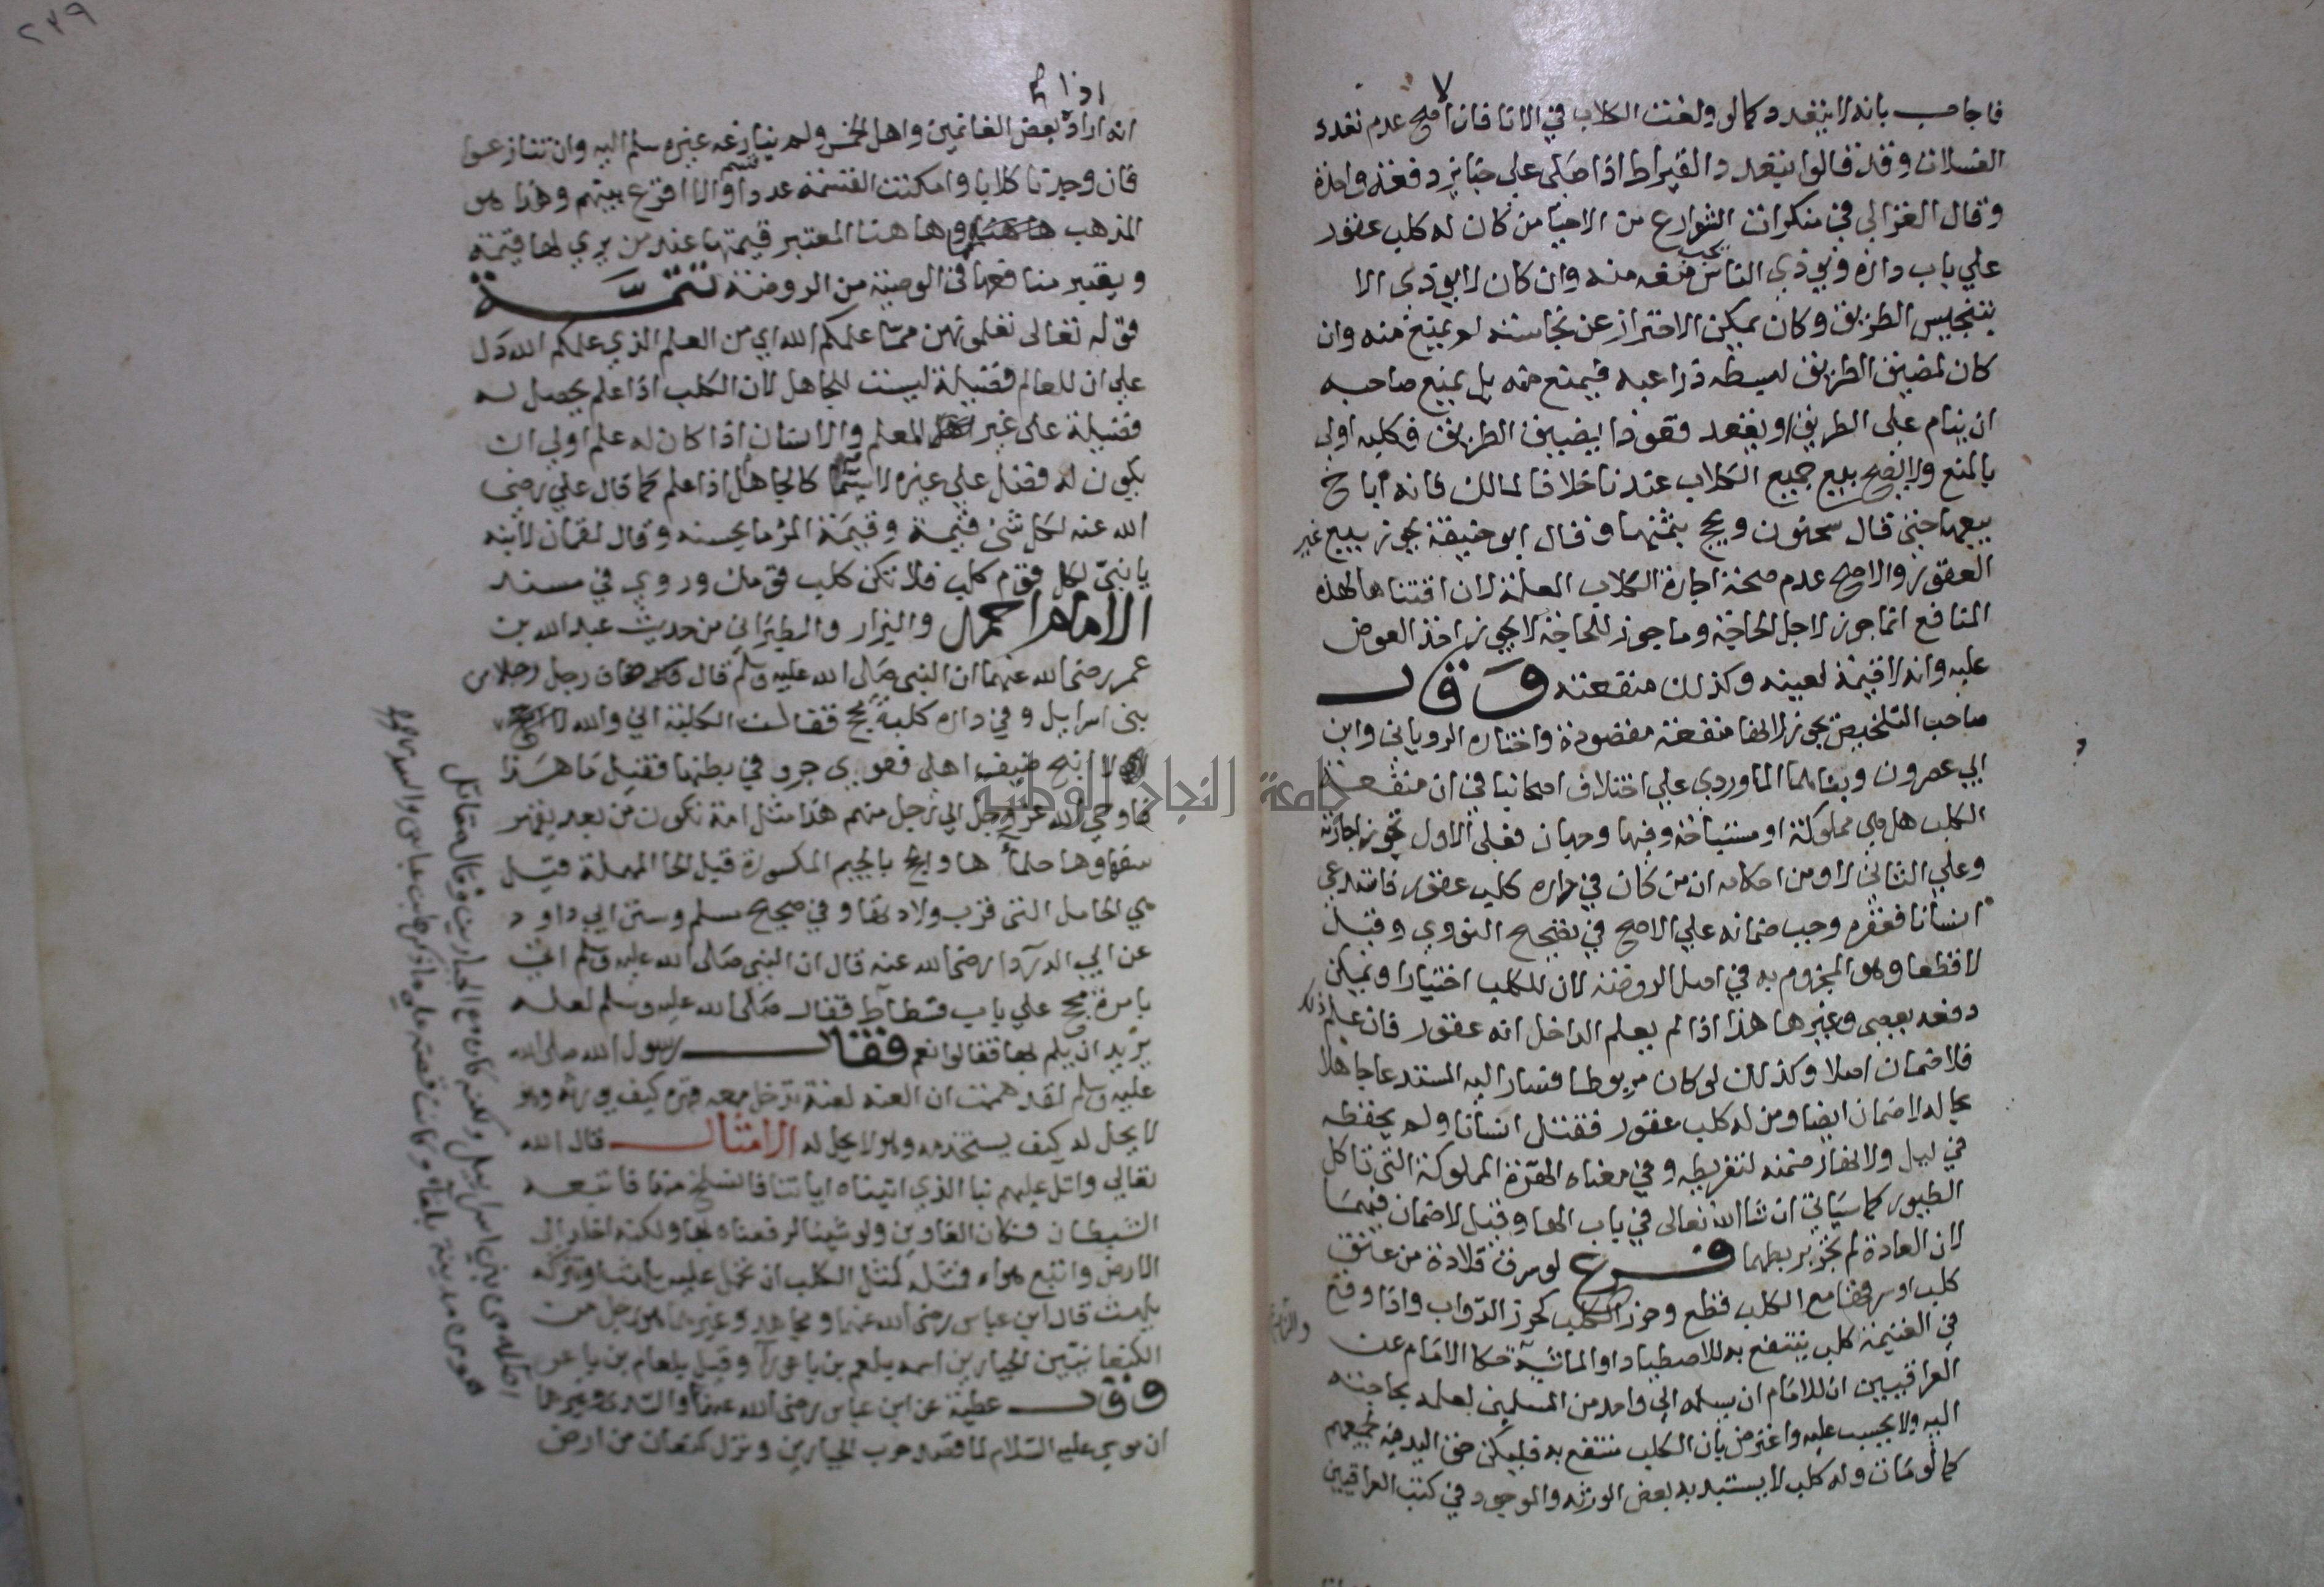 فاجاب بانه لا يتعدد كما لو ولغت الكلاب في الانا فان الاصح عدم تعدد
الغسلات وقد قالوا يتعدد القيراط اذا صلى علي جنايز دفعة واحدة
وقال الغزالي في منكرات الشوارع من الاحيا من كان له كلب عقور
علي باب داره ويوذي الناس يجب منعه منه وان كان لا يوذي الا
بتنجيس الطريق وكان يمكن الاحتراز عن نجاسته لم يمنع منه وان
كان لضيق الطريق لبسطه ذراعيه فيمنع منه بل يمنع صاحبه
ان ينام علي الطريق او يقعد قعودا يضيق الطريق فكلبه اولي
بالمنع ولا يصح بيع جميع الكلاب عندنا خلافا لمالك فانه اباح
بيعها حتى قال سحنون ويحج بثمنها وقال ابو حنيفة يجوز بيع غير
العقور والاصح عدم صحة اجارة الكلاب المعلمة لان اقتناها لهذه
المنافع انما جوز لاجل الحاجة وما جوز للحاجة لا يجوز اخذ العوض
عليه وانه لا قيمة لعينه وكذلك منفعته وقال
صاحب التلخيص يجوز لانها منفعة مقصودة واختاره الروياني وابن
ابي عصرون وبناهما الماوردي علي اختلاف اصحابنا في ان منفعة
الكلب هل هي مملوكة او مستباحة وفيها وجهان فعلي الاول تجوز اجارته
وعلي الثاني لا ومن احكامه ان من كان في داره كلب عقور فاستدعي
انسانا فعقره وجب ضمانه علي الاصح في تصحيح النووي وقيل
لا قطعا وهو المجزوم به في اصل الروضة لان للكلب اختيارا ويمكن
دفعه بعصى وغيرها هذا اذا لم يعلم الداخل انه عقور فان علم ذلك
فلا ضمان اصلا وكذلك لو كان مربوطا فسار اليه المستدعا جاهلا
بحاله لا ضمان ايضا ومن له كلب عقور فقتل انسانا ولم يحفظه
في ليل ولا نهار ضمنه لتفريطه وفي معناه الهرة المملوكة التي تاكل
الطيور كما سياتي ان شا الله تعالى في باب الها وقيل لا ضمان فيهما
لان العادة لم تجر بربطهما فرع لو سرق قلادة من عنق
كلب او سرقها مع الكلب قطع وحرز الكلب كحرز الدواب واذا وقع
في الغنيمة كلب ينتفع به للاصطياد او الماشية حكا الامام عن
العراقيين ان للامام ان يسلمه الي واحد من المسلمين لعلمه بحاجته
اليه ولا يحسب عليه واعترض بان الكلب منتفع به فليكن حق اليد فيه لجميعهم
كما لو مات وله كلب لا يستبد به بعض الورثة والموجود في كتب العراقيين
٢٣٩
انه اذا اراده بعض الغانمين واهل الخمس ولم ينازعه غيره سلم اليه وان تنازعوا
فان وجدنا كلابا وامكنت القسمة عددا قسم والا اقرع بينهم وهذا هو
المذهب وهاهنا المعتبر قيمتها عند من يري لها قيمة
ويعتبر منافعها في الوصية من الروضة تتمة
قوله تعالى تعلمونهن مما علمكم الله اي من العلم الذي علمكم الله دل
علي ان للعالم فضيلة ليست للجاهل لان الكلب اذا علم يحصل له
فضيلة على غير المعلم والانسان اذا كان له علم اولي ان
يكون له فضل علي غيره لا سيما كالجاهل اذا علم كما قال علي رضي
الله عنه لكل شى قيمة وقيمة المرء ما يحسنه وقال لقمان لابنه
يا بني لكل قوم كلب فلا تكن كلب قومك وروي في مسند
الامام احمد والبزار والطبراني من حديث عبد الله بن
عمر رضي الله عنهما ان النبي صلى الله عليه وسلم قال ضاف رجل رجلا من
بني اسرايل وفي داره كلبة مجح فقالت الكلبة اي والله لا
لا انبح ضيف اهلي فعوي جرو في بطنها فقيل ما هذا
فاوحي الله عز وجل الي رجل منهم هذا مثل امة تكون من بعد يقهر
سفهاوها حلماها والمجح بالجيم المكسورة قبل الحا المهملة قيل
هي الحامل التي قرب ولادتها وفي صحيح مسلم وسنن ابي داود
عن ابي الدردا رضي الله عنه قال ان النبي صلى الله عليه وسلم اتي
بامرة مجح علي باب فسطاط فقال صلى الله عليه وسلم لعله
يريد ان يلم بها فقالوا نعم فقال رسول الله صلى الله
عليه وسلم لقد هممت ان العنه لعنة تدخل معه قبره كيف يورثه وهو
لا يحل له كيف يستخدمه وهو لا يحل له الامثال قال الله
تعالي واتل عليهم نبا الذي اتيناه اياتنا فانسلخ منها فاتبعه
الشيطان فكان الغاوين ولو شينا لرفعناه بها ولكنه اخلد الى
الارض واتبع هواه فمثله كمثل الكلب ان تحمل عليه يلهث او تتركه
يلهث قال ابن عباس رضي الله عنهما ومجاهد وغيرهما هو رجل من
الكنعانيين الجبارين اسمه بلعم بن باعورا وقيل بلعام بن باعر
وقال عطية عن ابن عباس رضي الله عنهما والسدي وغيرهما
ان موسي عليه السلام لما قصد حرب الجبارين ونزل كنعان من ارض
اصله من بني اسراييل ولكنه كان مع الجبارين وقال مقاتل
هو من مدينة بلقا وكانت قصته علي ما ذكر ابن عباس والسدي
جامعة النجاح الوطنية